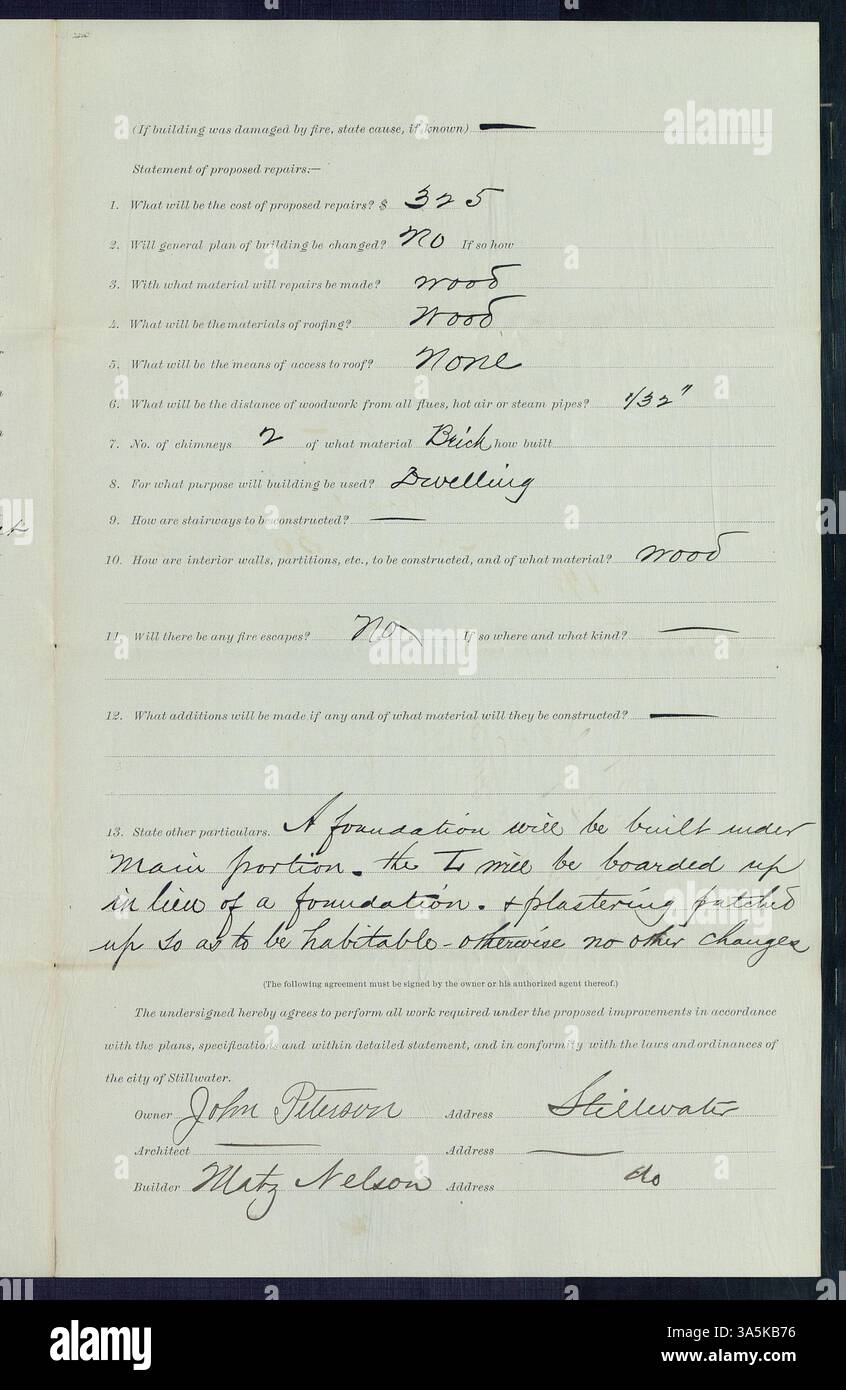 (If building was damaged by fire, state cause, if known) —
Statement of proposed repairs:—
1. What will be the cost of proposed repairs? $ 325
2. Will general plan of building be changed? No If so how
3. With what material will repairs be made? wood
4. What will be the materials of roofing? Wood
5. What will be the means of access to roof? None
6. What will be the distance of woodwork from all flues, hot air or steam pipes? 1/32"
7. No. of chimneys 2 of what material Brick how built
8. For what purpose will building be used? Dwelling
9. How are stairways to be constructed? —
10. How are interior walls, partitions, etc., to be constructed, and of what material? wood
11. Will there be any fire escapes? No If so where and what kind? —
12. What additions will be made if any and of what material will they be constructed? —
13. State other particulars. A foundation will be built under
main portion. the L will be boarded up
in lieu of a foundation. & plastering patched
up so as to be habitable - otherwise no other changes
(The following agreement must be signed by the owner or his authorized agent thereof.)
The undersigned hereby agrees to perform all work required under the proposed improvements in accordance
with the plans, specifications and within detailed statement, and in conformity with the laws and ordinances of
the city of Stillwater.
Owner John Peterson Address Stillwater
Architect — Address —
Builder Matz Nelson Address do
alamy
Image ID: 3A5KB76
www.alamy.com